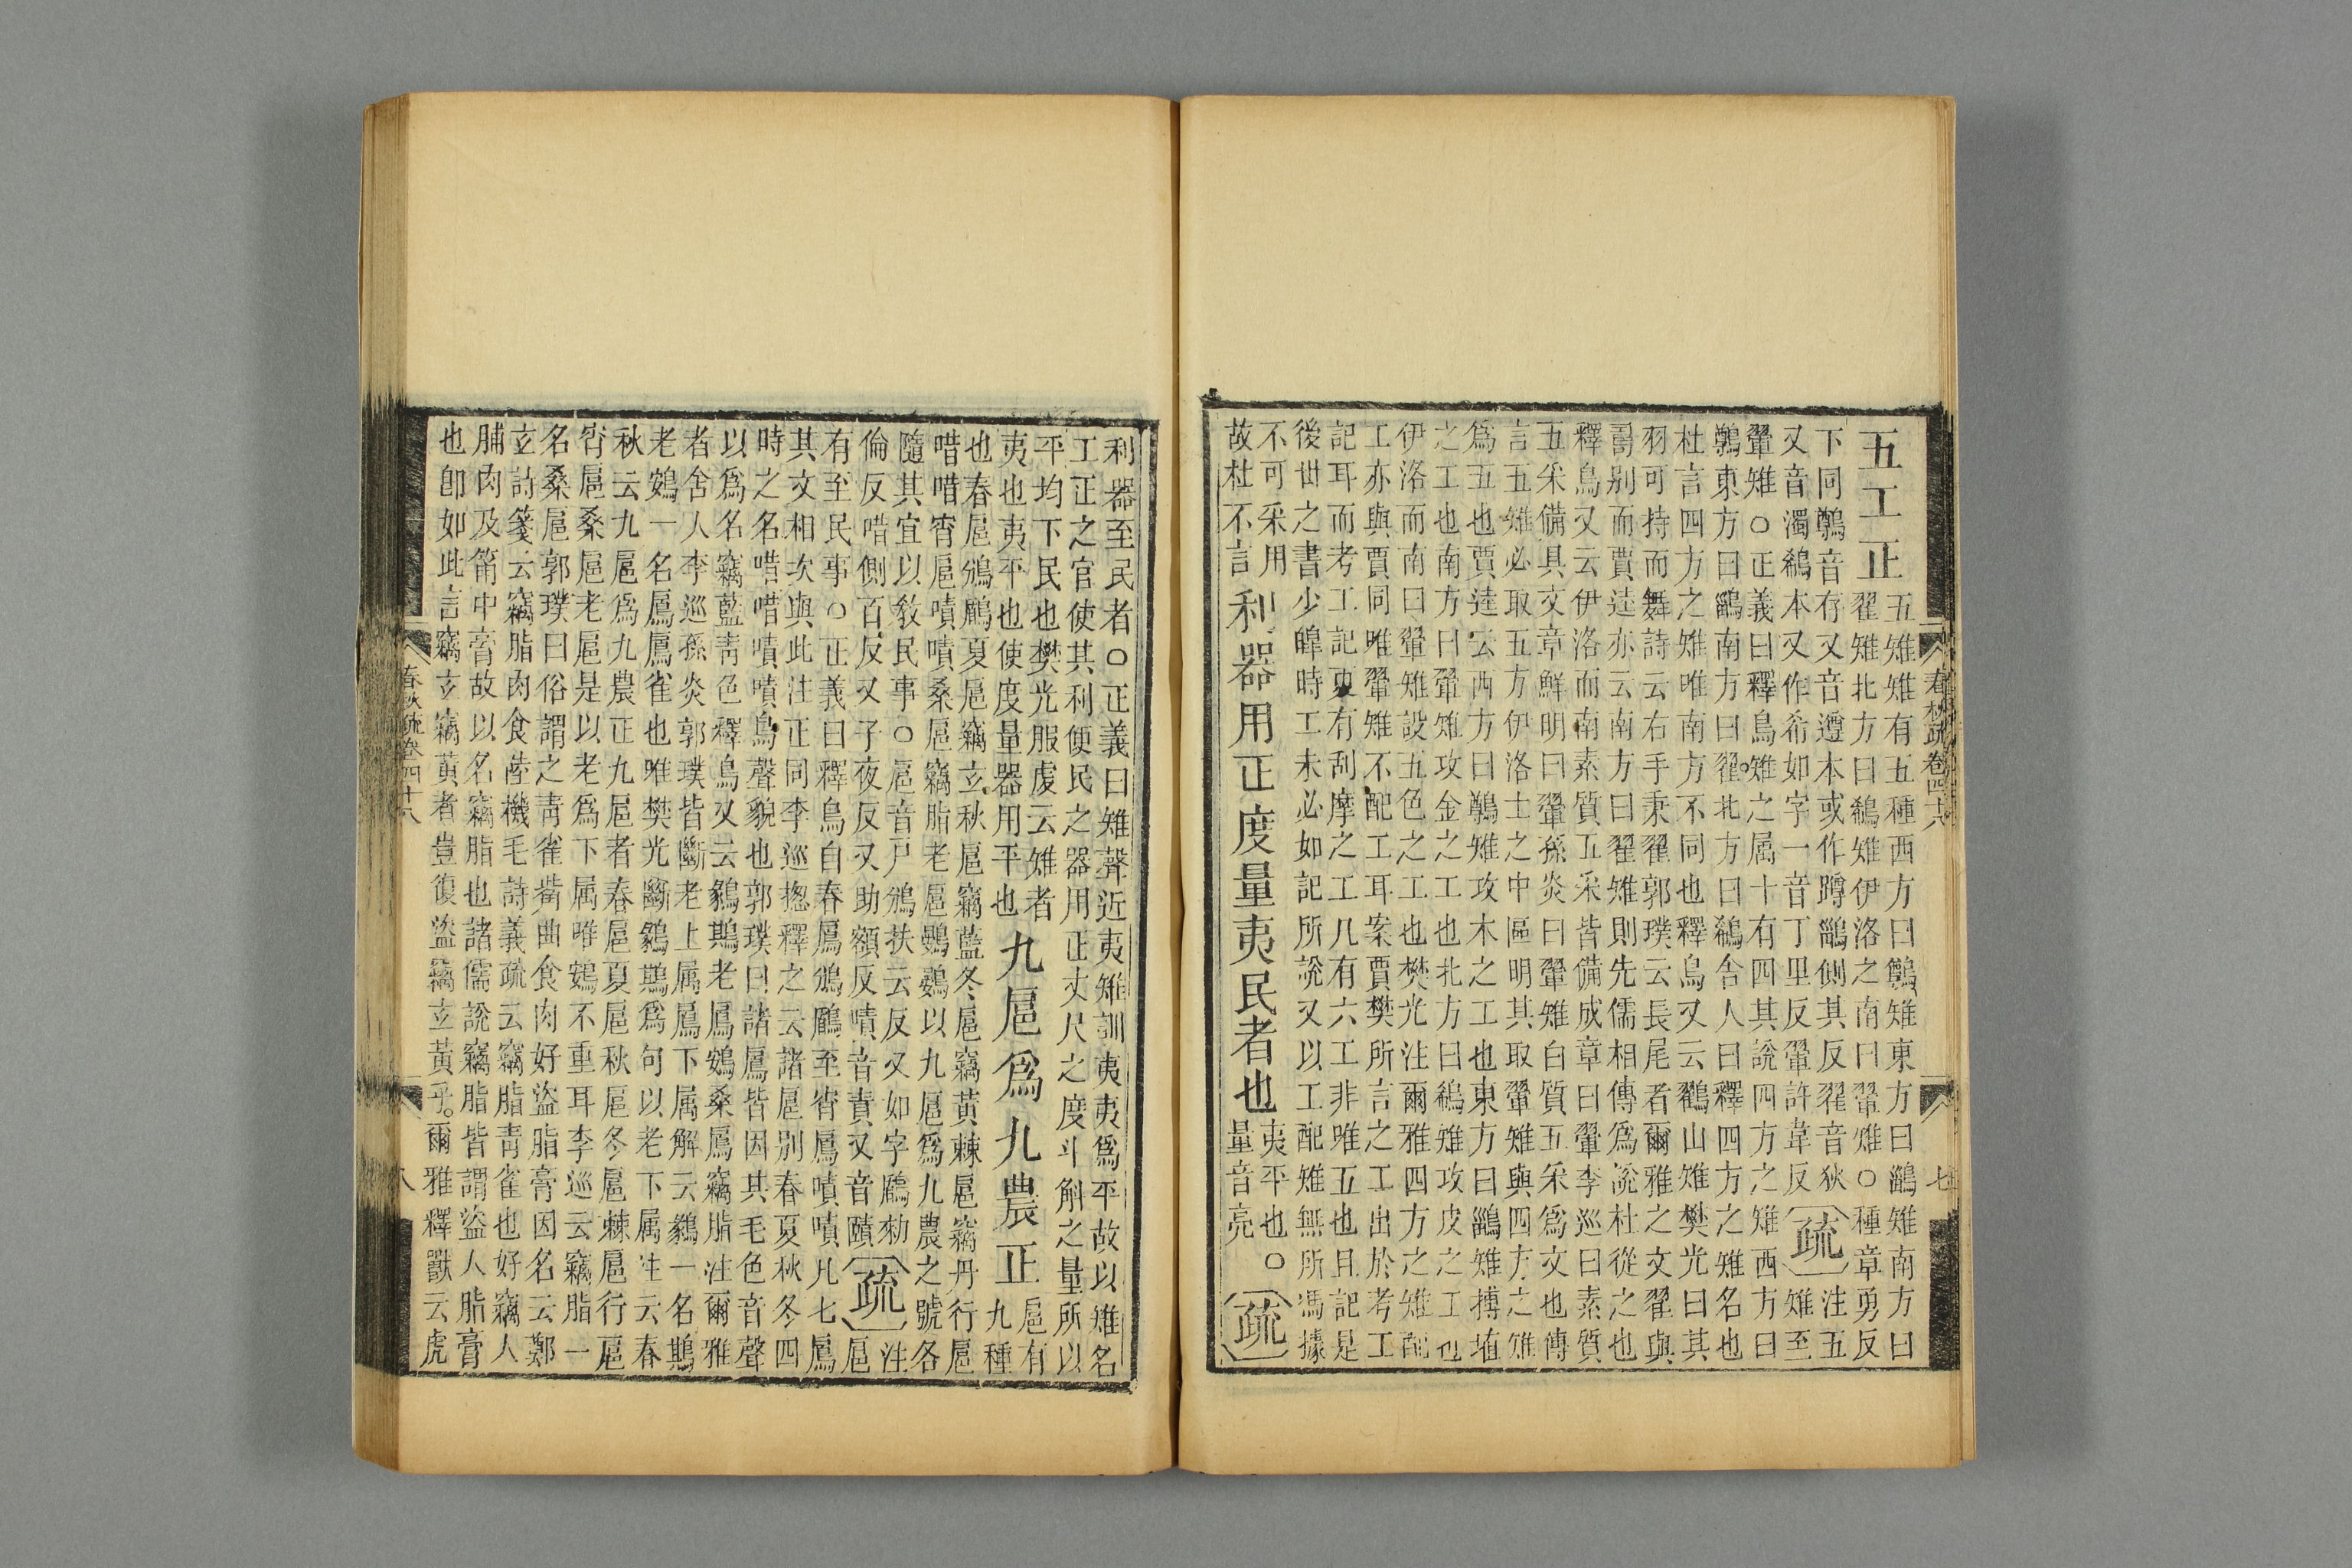 五工正
五雉雉有五種西方曰鷷雉東方曰鶅雉南方曰
翟雉北方曰鵗雉伊洛之南曰翬雉○種章勇反
下同鷷音存又音遵本或作蹲鶅側其反翟音狄
又音濁鵗本又作希如字一音丁里反翬許韋反
疏
注五
雉至
翬雉○正義曰釋鳥雉之属十有四其說四方之雉西方曰
鷷東方曰鶅南方曰翟北方曰鵗舍人曰釋四方之雉名也
杜言四方之雉唯南方不同也釋鳥又云鸐山雉樊光曰其
羽可持而舞詩云右手秉翟郭璞云長尾者爾雅之文翟與
翬别而賈逵亦云南方曰翟雉則先儒相傳爲說杜從之也
釋鳥又云伊洛而南素質五采皆備成章曰翬李巡曰素質
五采備具文章鮮明曰翬孫炎曰翬雉白質五采爲文也傳
言五雉必取五方伊洛土之中區明其取翬雉與四方之雉
爲五也賈逵云西方曰鷷雉攻木之工也東方曰鶅雉搏埴
之工也南方曰翟雉攻金之工也北方曰鵗雉攻皮之工也
伊洛而南曰翬雉設五色之工也樊光注爾雅四方之雉配
工亦與賈同唯翬雉不配工耳案賈樊所言之工出於考工
記耳而考工記更有刮摩之工凡有六工非唯五也且記是
後世之書少皥時工未必如記所說又以工配雉無所馮據
不可采用
故杜不言
利器用正度量夷民者也
夷平也○
量音亮
疏
利器至民者○正義曰雉聲近夷雉訓夷夷爲平故以雉名
工正之官使其利便民之器用正丈尺之度斗斛之量所以
平均下民也樊光服虔云雉者
夷也夷平也使度量器用平也
九扈爲九農正
扈有
九種
也春扈鳻鶥夏扈竊玄秋扈竊藍冬扈竊黃棘扈竊丹行扈
唶唶宵扈嘖嘖桑扈竊脂老扈鷃鷃以九扈爲九農之號各
隨其宜以教民事○扈音戶鳻扶云反又如字鶥勑
倫反唶側百反又子夜反又助額反嘖音責又音賾
疏
注
扈
有至民事○正義曰釋鳥自春鳸鳻鶥至宵鳸嘖嘖凡七鳸
其文相次與此注正同李巡揔釋之云諸扈别春夏秋冬四
時之名唶唶嘖嘖鳥聲貌也郭璞曰諸鳸皆因其毛色音聲
以爲名竊藍靑色釋鳥又云鶨鶀老鳸鴳桑鳸竊脂注爾雅
者舍人李巡孫炎郭璞皆斷老上属鳸下属解云鶨一名鶀
老鴳一名鳸鳸雀也唯樊光斷鶨鶀爲句以老下属注云春
秋云九扈爲九農正九扈者春扈夏扈秋扈冬扈棘扈行扈
宵扈桑扈老扈是以老爲下属唯鴳不重耳李巡云竊脂一
名桑扈郭璞曰俗謂之靑雀觜曲食肉好盜脂膏因名云鄭
玄詩箋云竊脂肉食陸機毛詩義疏云竊脂靑雀也好竊人
脯肉及筩中膏故以名竊脂也諸儒說竊脂皆謂盜人脂膏
也卽如此言竊玄竊黃者豈復盜竊玄黃乎爾雅釋獸云虎
春秋疏卷四十八
七
春秋疏卷四十八
八